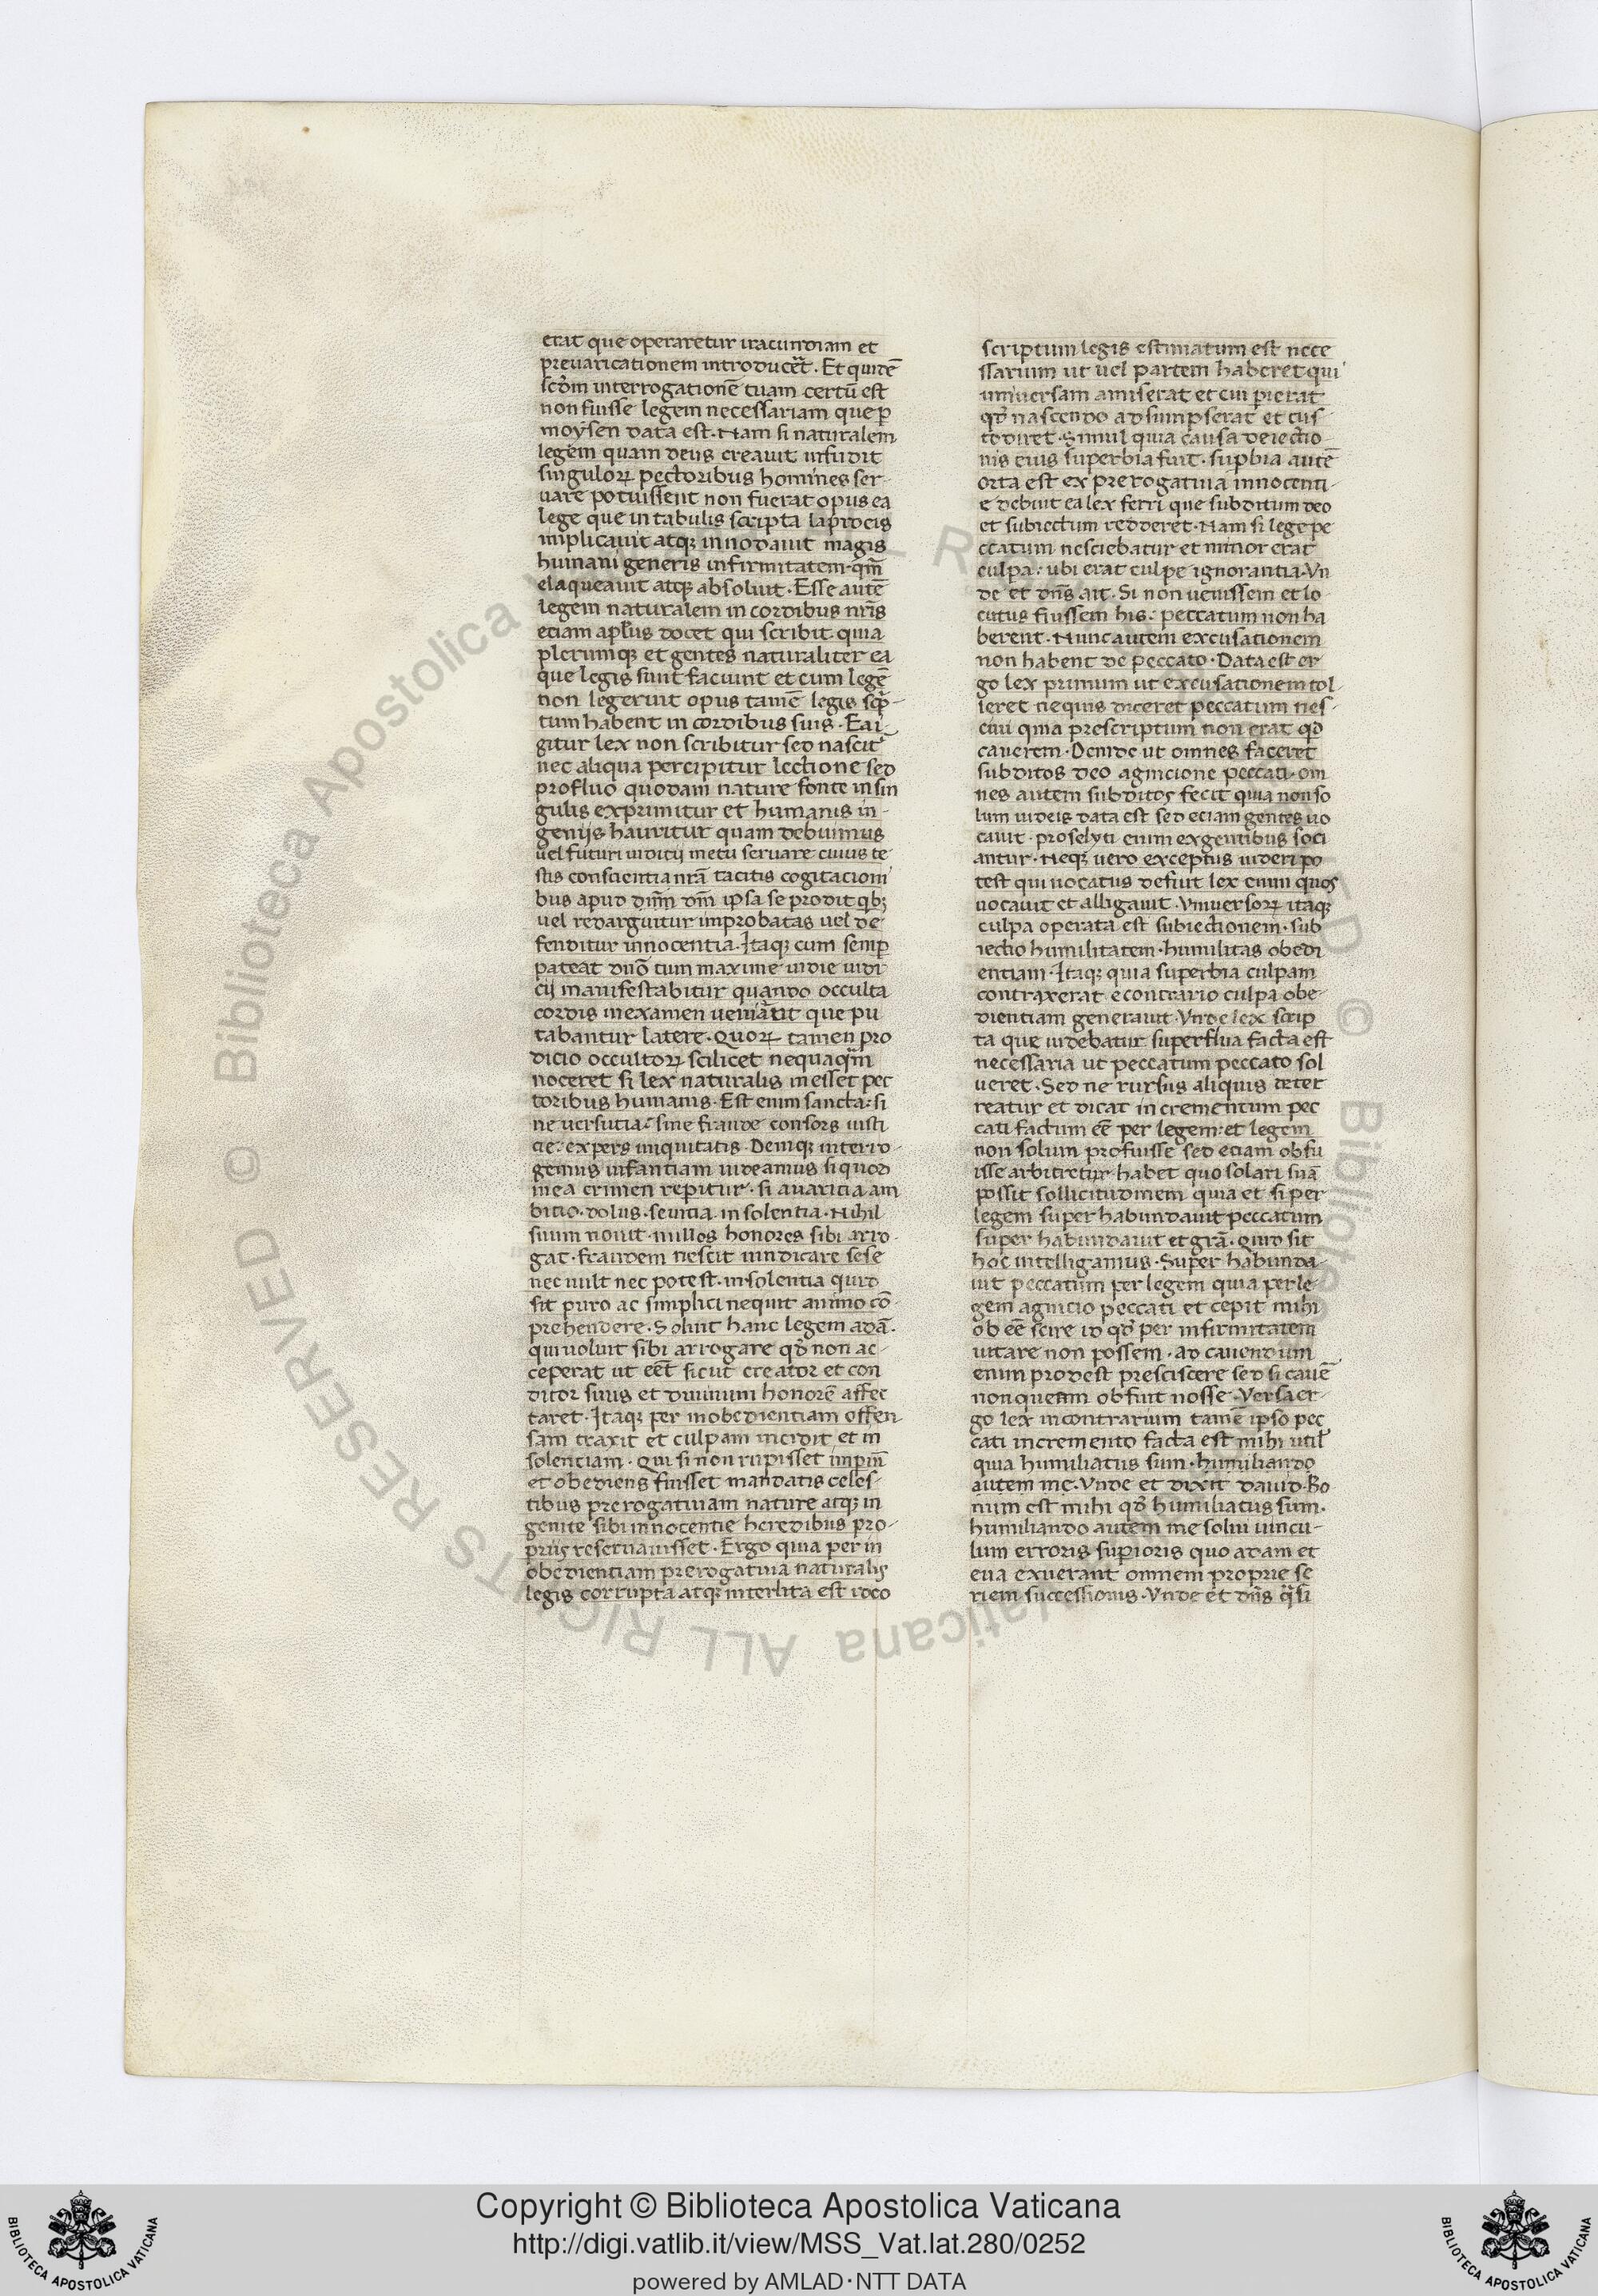 erat que operaretur iracundiam et
prevaricationem introducēt. Et quidē
scd̄m interrogationē tuam certū est
non fuisse legem necessariam que ꝑ
moysen data est. Nam si naturalem
legem quam deus creauit infudit
singuloꝝ pectoribus homines ser-
uare potuissent non fuerat opus ea
lege que in tabulis scripta lapideis
implicauit atqꝫ innodauit magis
humani generis infirmitatem qm̄
elaqueauit atqꝫ absoluit. Esse autē
legem naturalem in cordibus nr̄is
etiam apl̄us docet qui scribit quia
plerumqꝫ et gentes naturaliter ea
que legis sunt faciunt et cum legē
non legerint opus tamē legis scp̄-
tum habent in cordibus suis. Ea i-
gitur lex non scribitur sed nascit̄
nec aliqua percipitur lectione sed
profluo quodam nature fonte in sin
gulis exprimitur et humanis in-
genijs hauritur quam debuimus
uel futuri iuditij metu seruare cuius te
stis conscientia nr̄a tacitis cogitacioni
bus apud dn̄m dm̄ ipsa se prodit qbꝫ
uel redarguitur improbatas uel de
fenditur innocentia. Itaqꝫ cum semꝑ
pateat dn̄o tum maxime indie iudi
cij manifestabitur quando occulta
cordis in examen ueniāt que pu
tabantur latere. Quoꝝ tamen pro
dicio occultoꝝ scilicet nequaq̄m
noceret si lex naturalis inesset pec
toribus humanis. Est enim sancta: si
ne uersutia: sine fraude consors iusti
cie: expers iniquitatis. Deniqꝫ interro-
gemus infantiam uideamus si quod
in ea crimen repitur. si auaricia am
bitio. dolus. seuitia. insolentia. Nihil
suum nouit. nullos honores sibi arro-
gat. fraudem nescit uindicare sese
nec uult nec potest. insolentia quid
sit puro ac simplici nequit animo cō-
prehendere. Soluit hanc legem adā.
qui uoluit sibi arrogare qd̄ non ac-
ceperat ut eēt sicut creator et con
ditor suus et diuinum honorē affec
taret. Itaqꝫ per inobedientiam offen
sam traxit et culpam incidit et in
solentiam. Qui si non rupisset impiū
et obediens fuisset mandatis celes-
tibus prerogatiuam nature atqꝫ in
genite sibi innocentie heredibus pro-
prijs reseruauisset. Ergo quia per in
obedientiam prerogatiua naturalis
legis corrupta atqꝫ interlita est ideo
scriptum legis estimatum est nece
ssarium ut uel partem haberet qui
uniuersam amiserat et cui pierat
qd̄ nascendo adsumpserat et cus
todiret. Simul quia causa deiectio
nis eius superbia fuit. supbia autē
orta est ex prerogatiua innocenti-
e debuit ea lex ferri que subditum deo
et subiectum redderet. Nam si lege pe
ccatum nesciebatur et minor erat
culpa: ubi erat culpe ignorantia. Vn
de et dn̄s ait. Si non uenissem et lo
cutus fuissem his: peccatum non ha
berent. Nunc autem excusationem
non habent de peccato. Data est er
go lex primum ut excusationem tol
leret nequis diceret peccatum nes-
ciui quia prescriptum non erat qd̄
cauerem. Deinde ut omnes faceret
subditos deo agnicione peccati. om
nes autem subditos fecit quia non so
lum iudeis data est sed eciam gentes uo
cauit. proselyti enim ex gentibus soci
antur. Neqꝫ uero exceptus uideri po
test qui uocatus defuit lex enim quos
uocauit et alligauit. Vniuersoꝝ itaqꝫ
culpa operata est subiectionem. sub
iectio humilitatem. humilitas obedi
entiam. Itaqꝫ quia superbia culpam
contraxerat e contrario culpa obe-
dientiam generauit. Vnde lex scrip
ta que uidebatur superflua facta est
necessaria ut peccatum peccato sol
ueret. Sed ne rursus aliquis deter
reatur et dicat incrementum pec
cati factum eē per legem: et legem
non solum profuisse sed etiam obfu
isse arbitretur habet quo solari suā
possit sollicitudinem quia et si per
legem super habundauit peccatum
super habundauit et grā. Quid sit
hoc intelligamus. Super habunda-
uit peccatum per legem quia per le-
gem agnicio peccati et cepit mihi
ob eē scire id qd̄ per infirmitatem
uitare non possem. ad cauendum
enim prodest presciscere sed si cauē
non queam obfuit nosse. Versa er-
go lex in contrarium tamē ipso pec
cati incremento facta est mihi util̄
quia humiliatus sum. humiliando
autem me. Vnde et dixit dauid. Bo
num est mihi qd̄ humiliatus sum.
humiliando autem me solui uincu-
lum erroris superioris quo adam et
eua exuerant omnem proprie se
riem successionis. Vnde et dn̄s q̄si
Copyright © Biblioteca Apostolica Vaticana
http://digi.vatlib.it/view/MSS_Vat.lat.280/0252
powered by AMLAD·NTT DATA
BIBLIOTECA APOSTOLICA VATICANA
BIBLIOTECA APOSTOLICA VATICANA